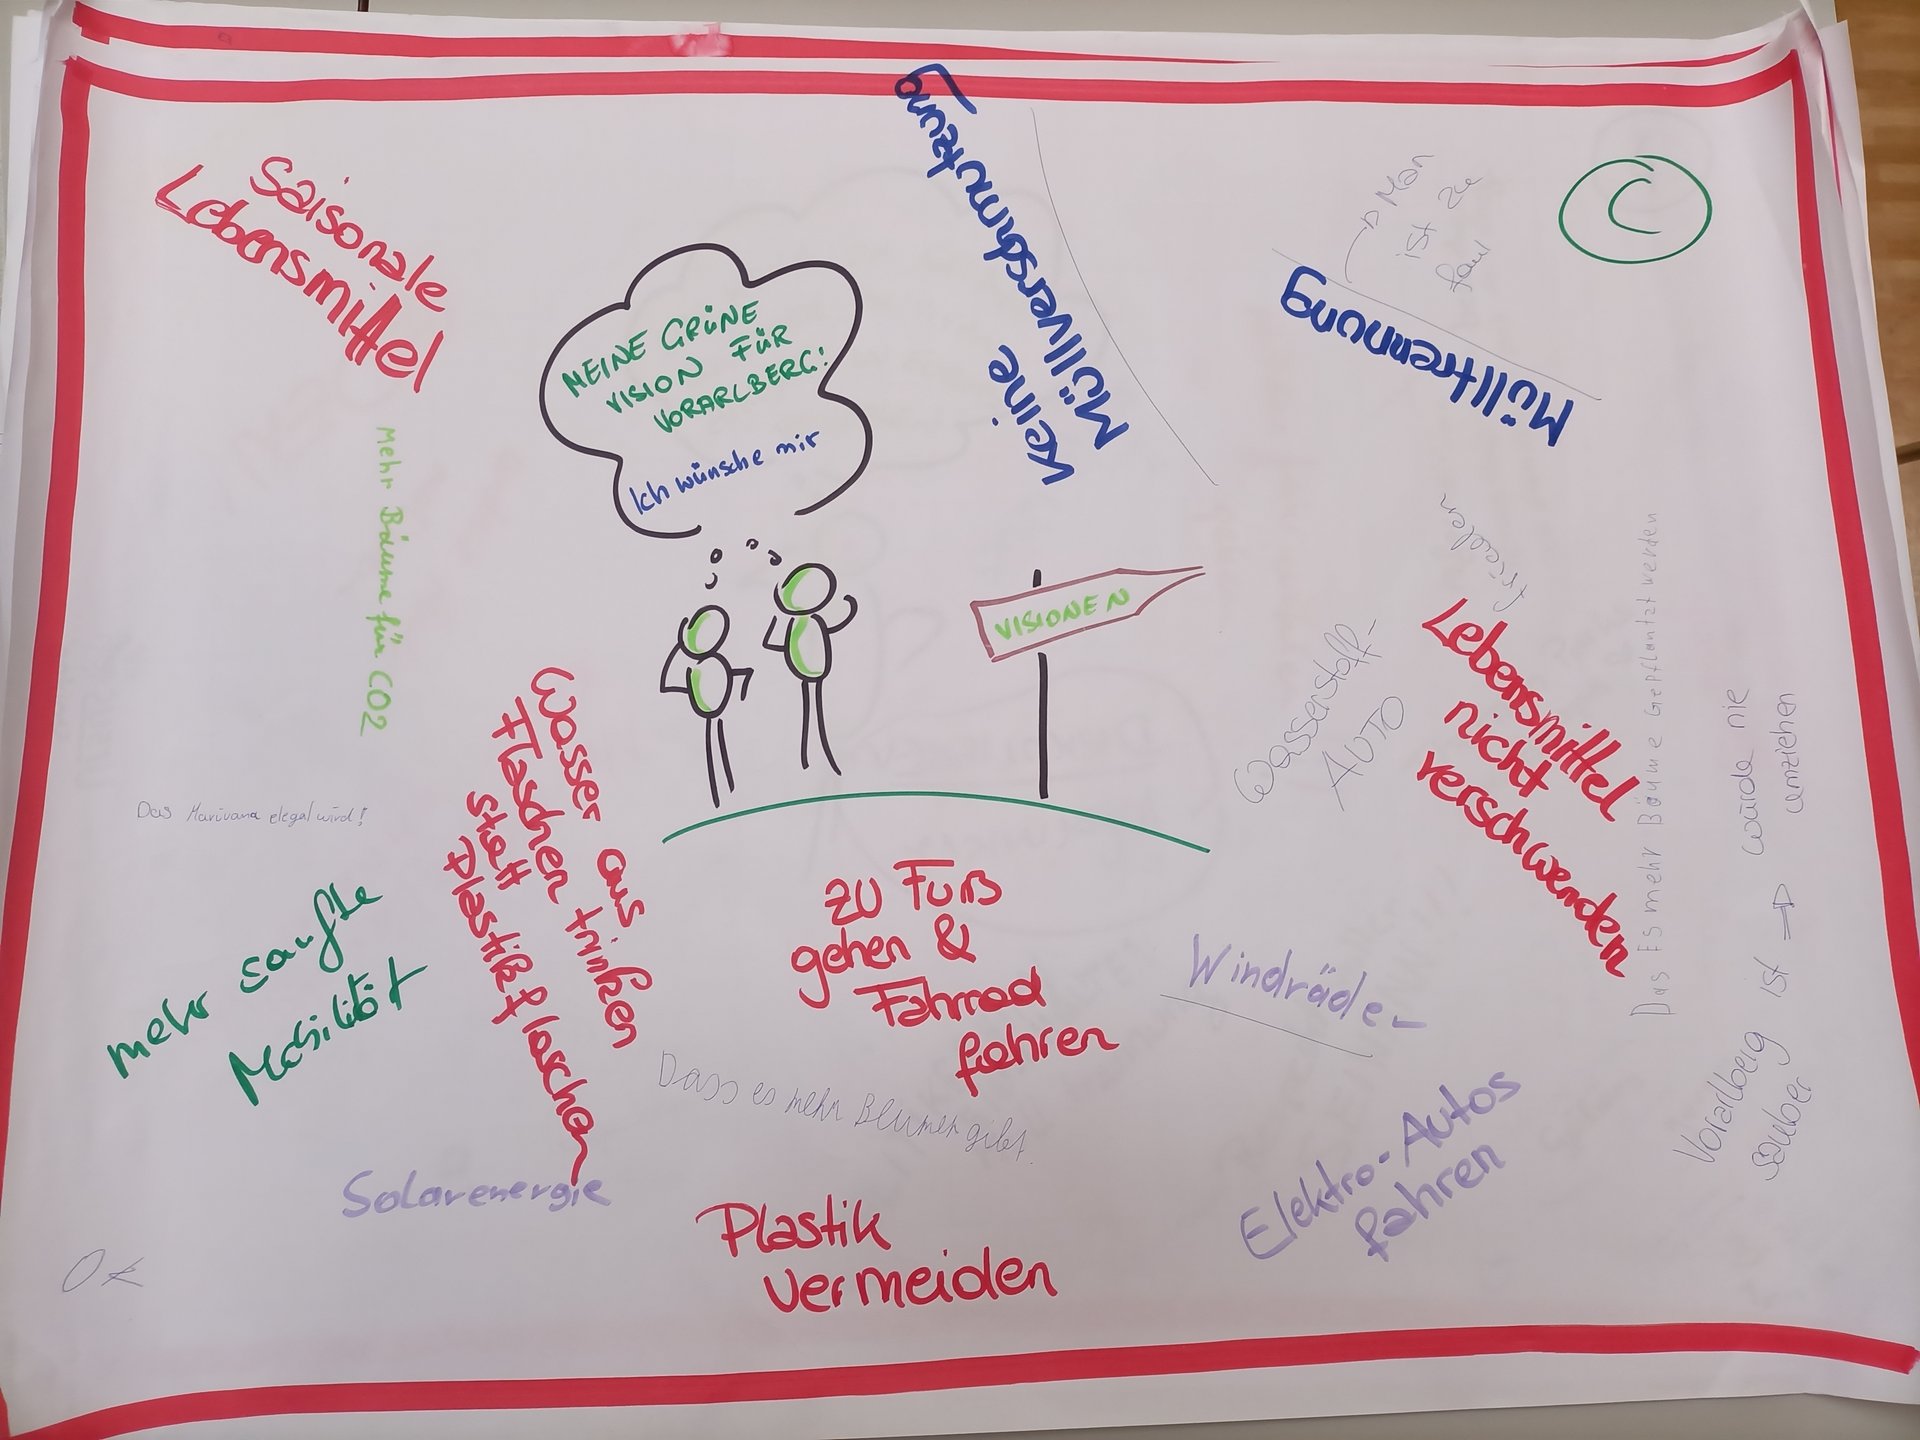 saisonale
Lebensmittel
MEINE GRÜNE
VISION FÜR
VORARLBERG!
Ich wünsche mir
Keine
Müllverschmutzung
Man
ist zu
faul
Mülltrennung
C
Mehr Bäume für CO2
VISIONEN
frieden
Wasserstoff-
AUTO
Lebensmittel
nicht
verschwenden
Das ES mehr Bäume Gepflantzt werden
Vorarlberg ist → würde nie
sauber umziehen
Das Marivana elegal wird!
mehr sanfte
Mobilität
Wasser aus
Flaschen trinken
statt
Plastikflaschen
zu Fuß
gehen &
Fahrrad
fahren
Windräder
Dass es mehr Blumen gibt.
Solarenergie
Elektro-Autos
fahren
Plastik
vermeiden
OK